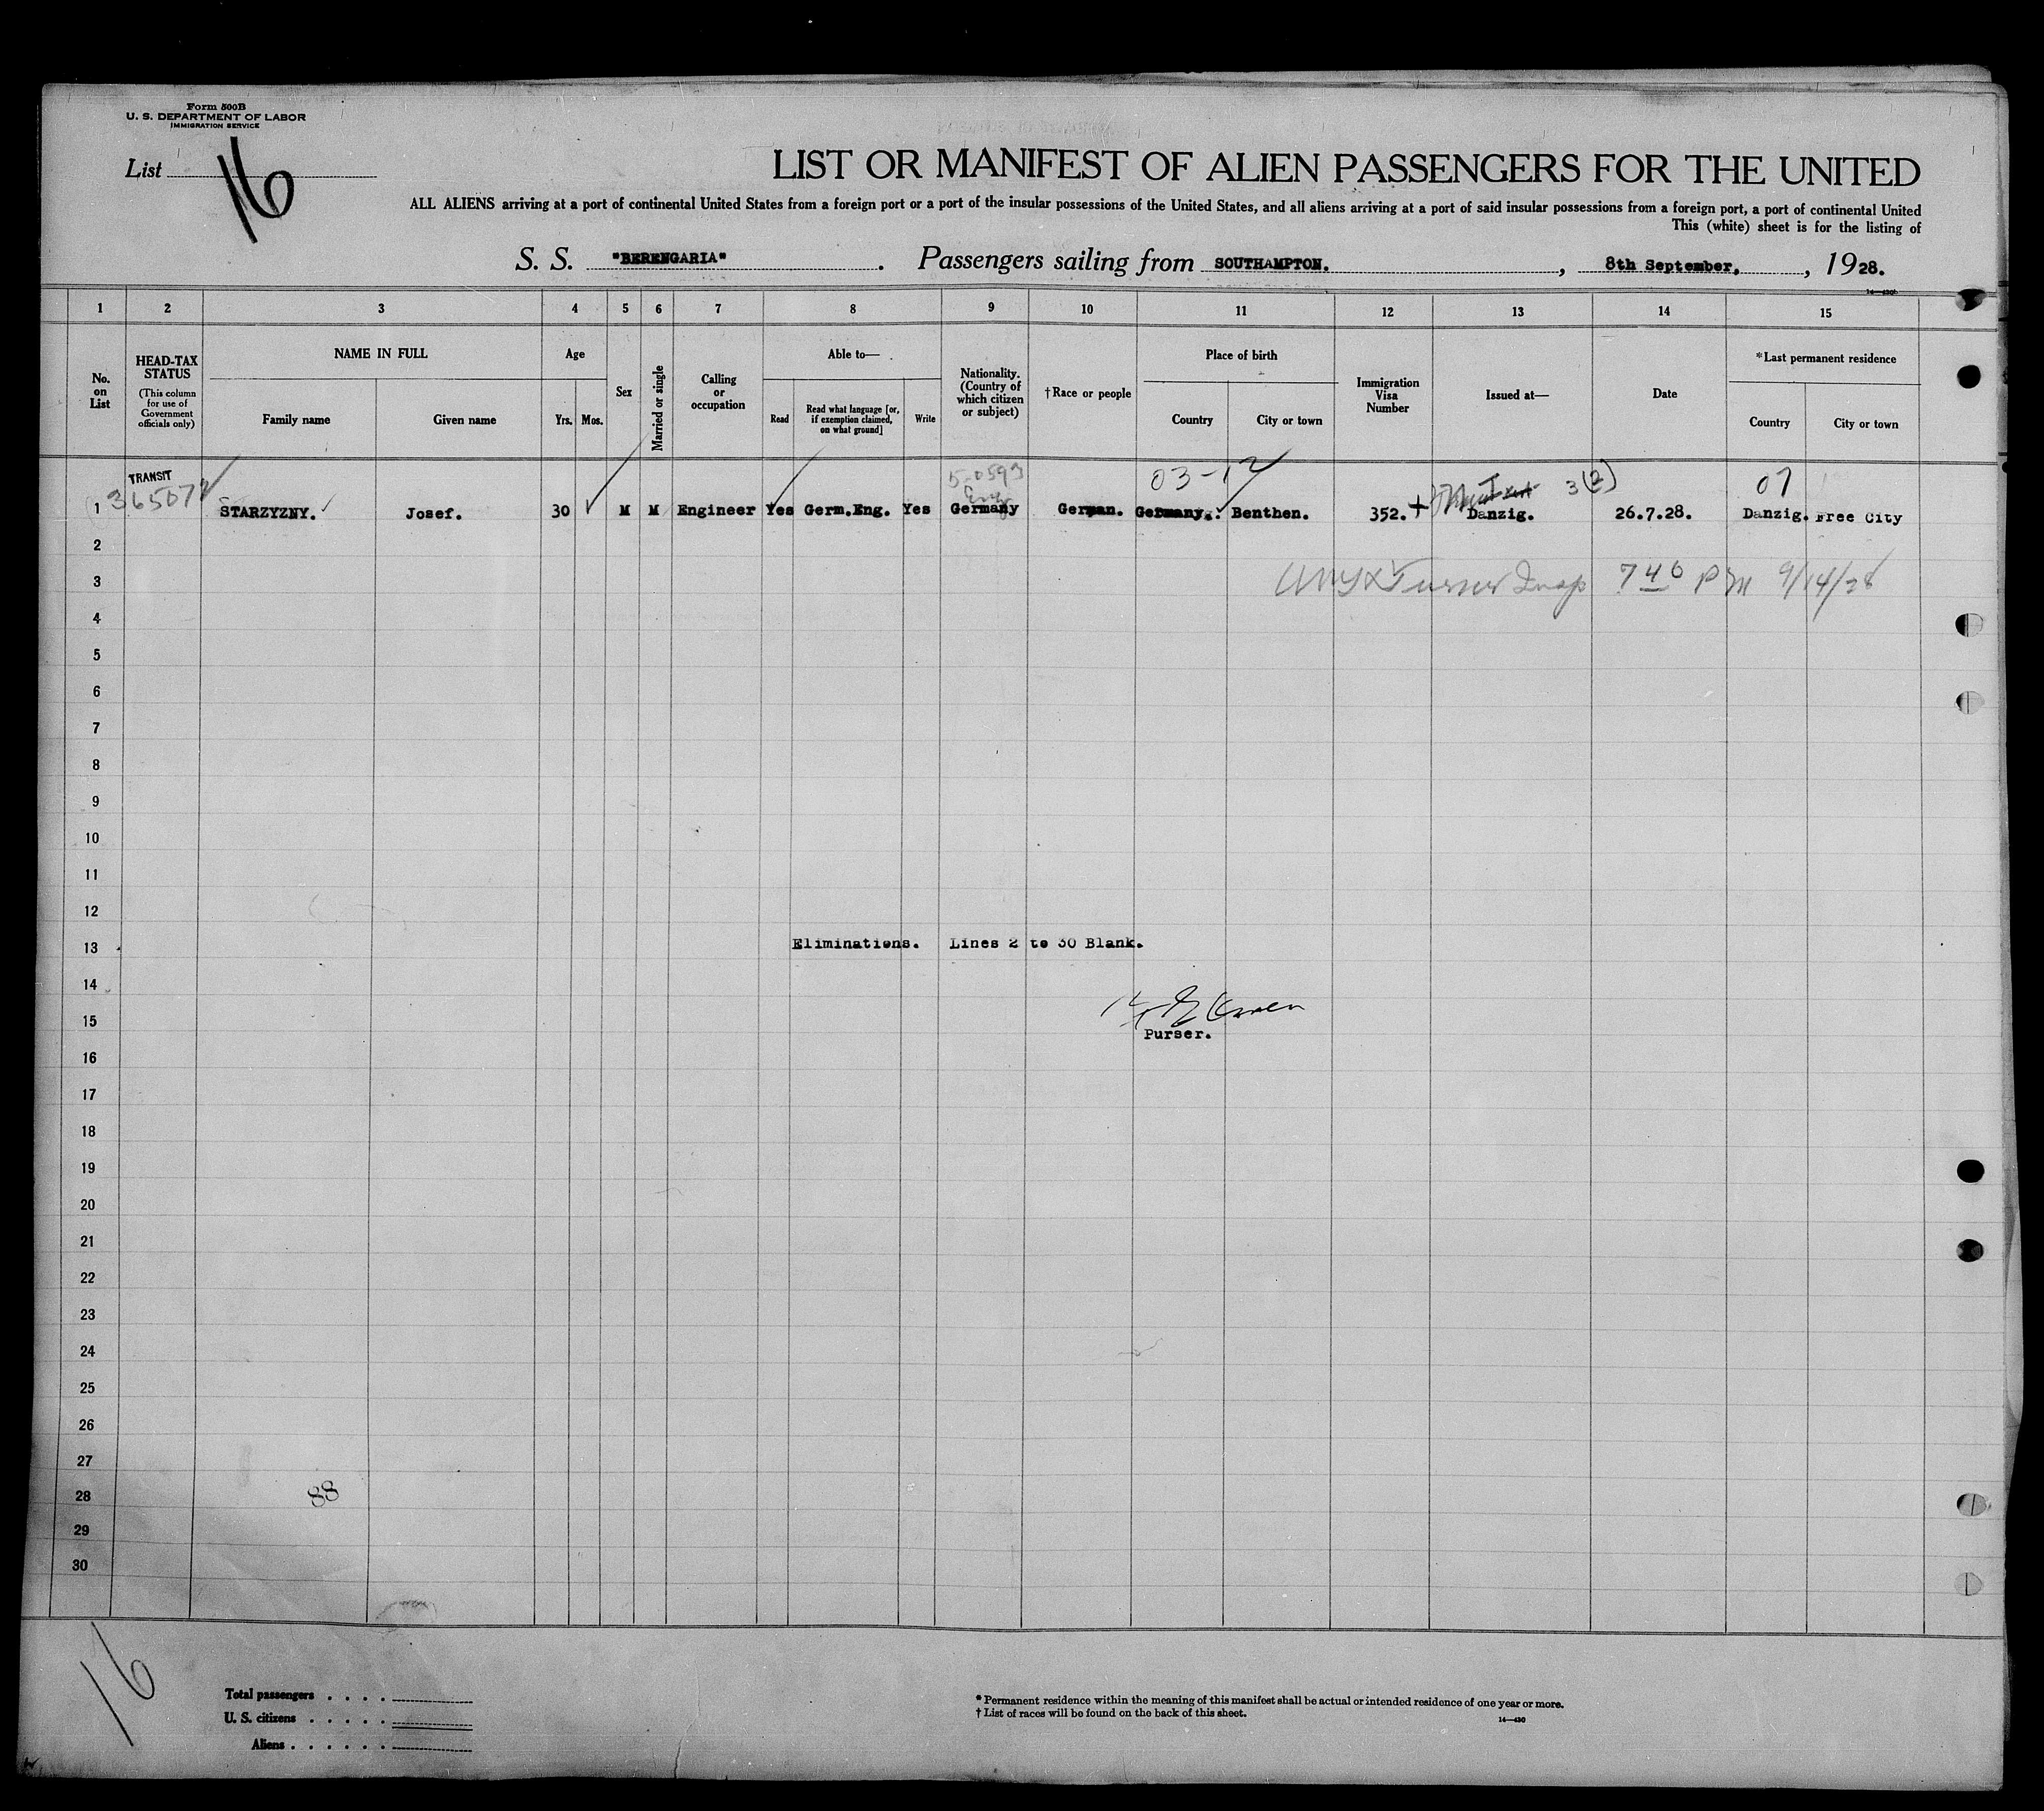 Form 500B
U. S. DEPARTMENT OF LABOR
IMMIGRATION SERVICE
List 16
LIST OR MANIFEST OF ALIEN PASSENGERS FOR THE UNITED
ALL ALIENS arriving at a port of continental United States from a foreign port or a port of the insular possessions of the United States, and all aliens arriving at a port of said insular possessions from a foreign port, a port of continental United
This (white) sheet is for the listing of
S. S. "BERENGARIA" . Passengers sailing from SOUTHAMPTON. , 8th September, , 1928.
14—430
1 2 3 4 5 6 7 8 9 10 11 12 13 14 15
No. on List
HEAD-TAX STATUS
(This column for use of Government officials only)
NAME IN FULL
Family name
Given name
Age
Yrs.
Mos.
Sex
Married or single
Calling or occupation
Able to—
Read
Read what language [or, if exemption claimed, on what ground]
Write
Nationality. (Country of which citizen or subject)
†Race or people
Place of birth
Country
City or town
Immigration Visa Number
Issued at—
Date
*Last permanent residence
Country
City or town
TRANSIT
5-0593
03-12
3(2)
07
1 STARZYZNY. Josef. 30 M M Engineer Yes Germ.Eng. Yes Germany German. Germany. Benthen. 352. Danzig. 26.7.28. Danzig. Free City
2
3 Turner Insp 7 40 PM 9/14/28
4
5
6
7
8
9
10
11
12
13 Eliminations. Lines 2 to 30 Blank.
14
15
Purser.
16
17
18
19
20
21
22
23
24
25
26
27
28 88
29
30
16
Total passengers . . . .
U. S. citizens . . . . .
Aliens . . . . . .
* Permanent residence within the meaning of this manifest shall be actual or intended residence of one year or more.
† List of races will be found on the back of this sheet.
14—430